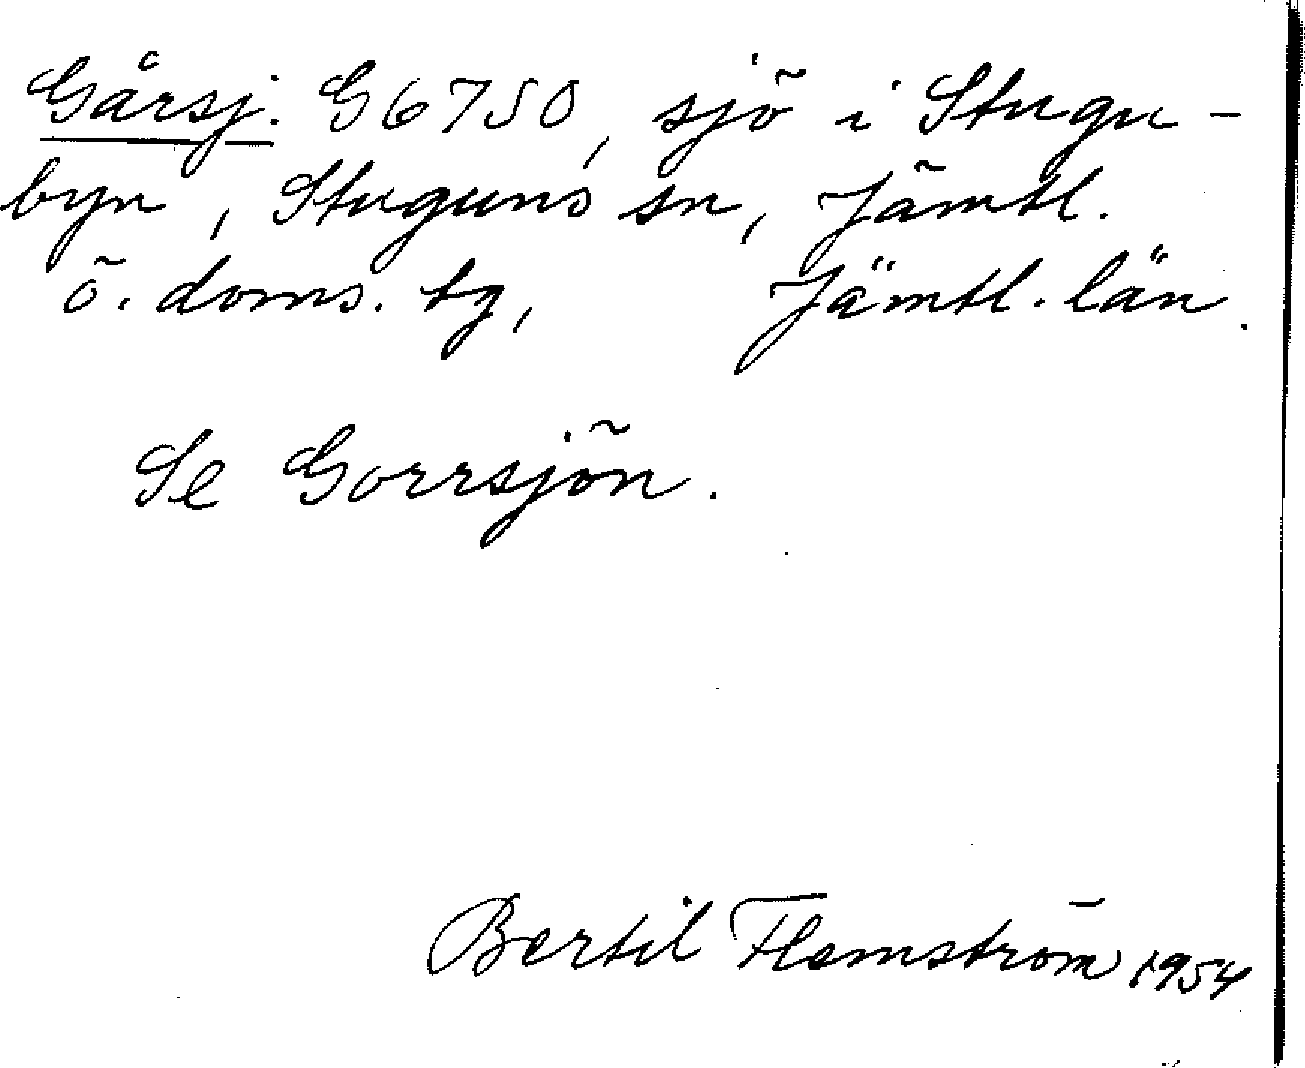 Gårsj. G6750, sjö i Stugu-
byn, Stuguns sn, Jämtl.
ö. doms. tg, Jämtl. län.
Se Gorrsjön.
Bertil Flemström 1954